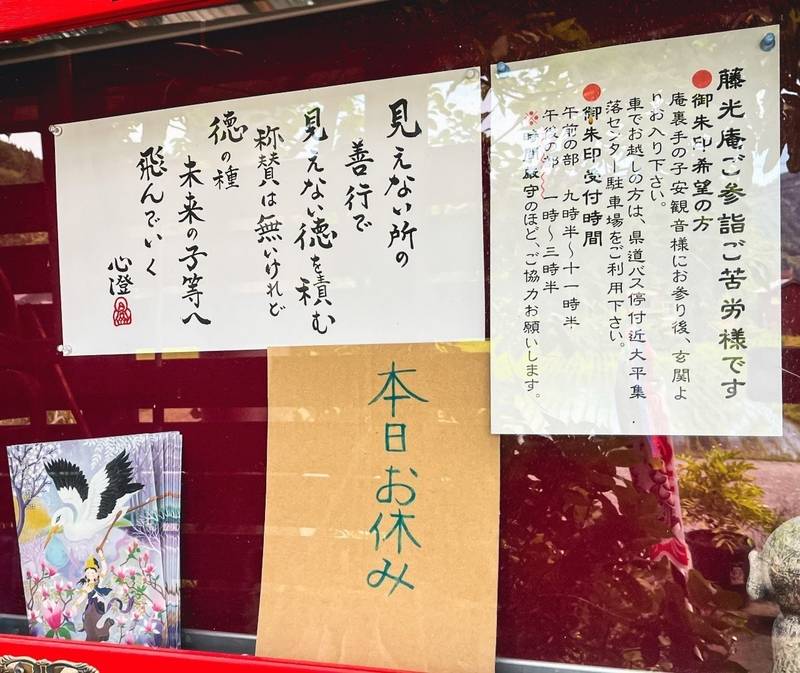 藤光庵ご参詣ご苦労様です
●御朱印希望の方
庵裏手の子安観音様にお参り後、玄関よ
りお入り下さい。
車でお越しの方は、県道バス停付近大平集
落センター駐車場をご利用下さい。
●御朱印受付時間
午前の部 九時半~十一時半
午後の部 一時~三時半
※時間厳守のほど、ご協力お願いします。
見えない所の
善行で
見えない徳を積む
称賛は無いけれど
徳の種
未来の子等へ
飛んでいく
心澄
本日お休み